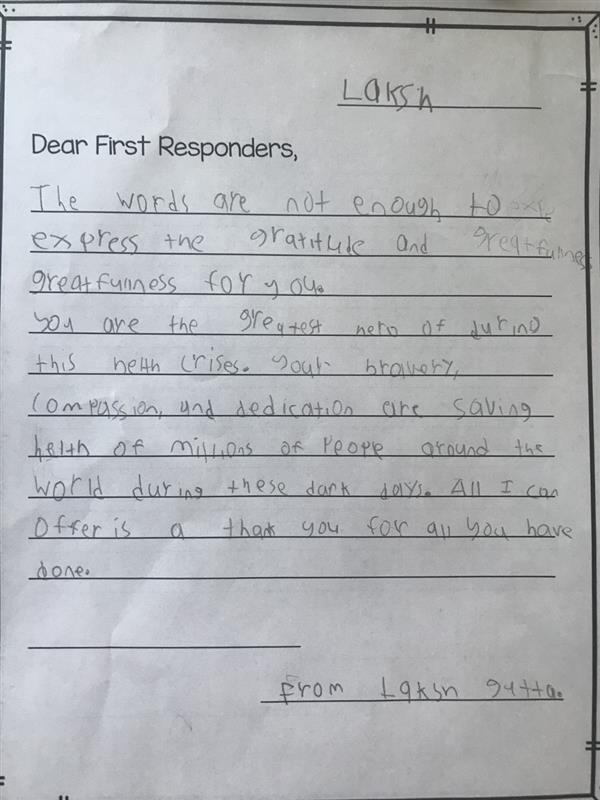 Laksh
Dear First Responders,
The words are not enough to
express the gratitude and greatfunness
greatfunness for you.
you are the greatest hero of during
this helth crises. your bravery,
compassion, and dedication are saving
helth of millions of peope around the
world during these dark days. All I can
offer is a thank you for all you have
done.
From Laksh gutta.